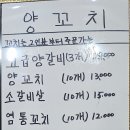 양꼬치
꼬치는 2인분 부터 주문가능
고급양갈비(3개)
양꼬치 (10개) 13,000
소갈비살 (10개) 15,000
염통꼬치 (10개) 12,000